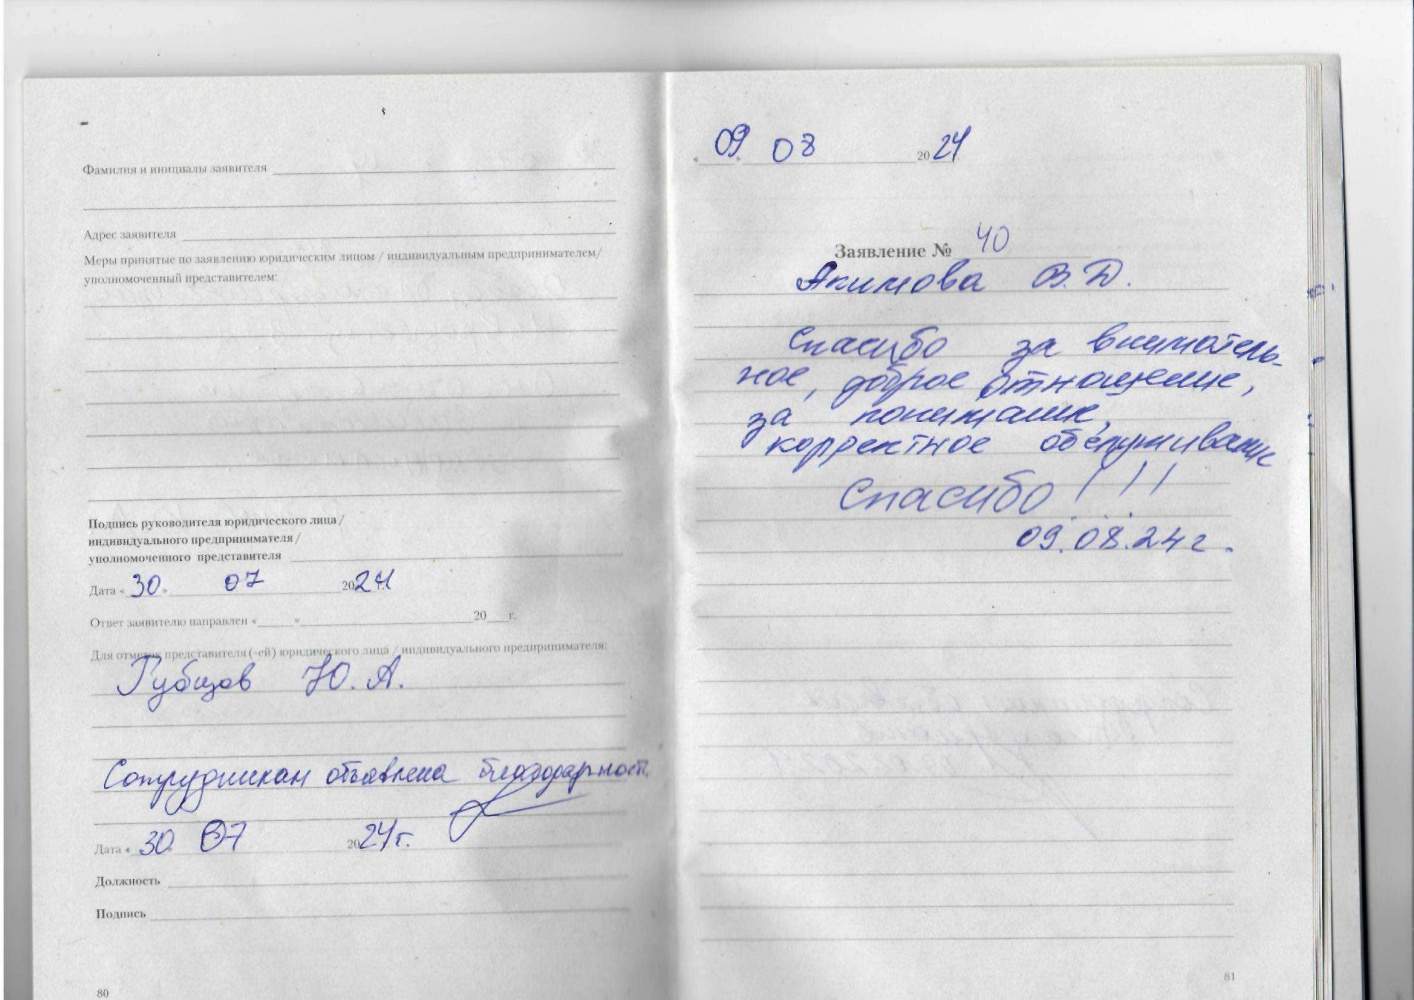 Фамилия и инициалы заявителя
Адрес заявителя
Меры принятые по заявлению юридическим лицом / индивидуальным предпринимателем/
уполномоченный представителем:
Подпись руководителя юридического лица/
индивидуального предпринимателя/
уполномоченного представителя
Дата « 30 » 07 2024
Ответ заявителю направлен « » 20 г.
Для отметок представителя (-ей) юридического лица / индивидуального предпринимателя:
Губцов Ю. А.
Сотрудникам объявлена благодарность.
Дата « 30 07 2024г.
Должность
Подпись
80
« 09 » 08 2024
Заявление № 40
Акимова В. Д.
Спасибо за вниматель-
ное, доброе отношение,
за понимание,
корректное обслуживание
Спасибо!!!
09.08.24г.
81